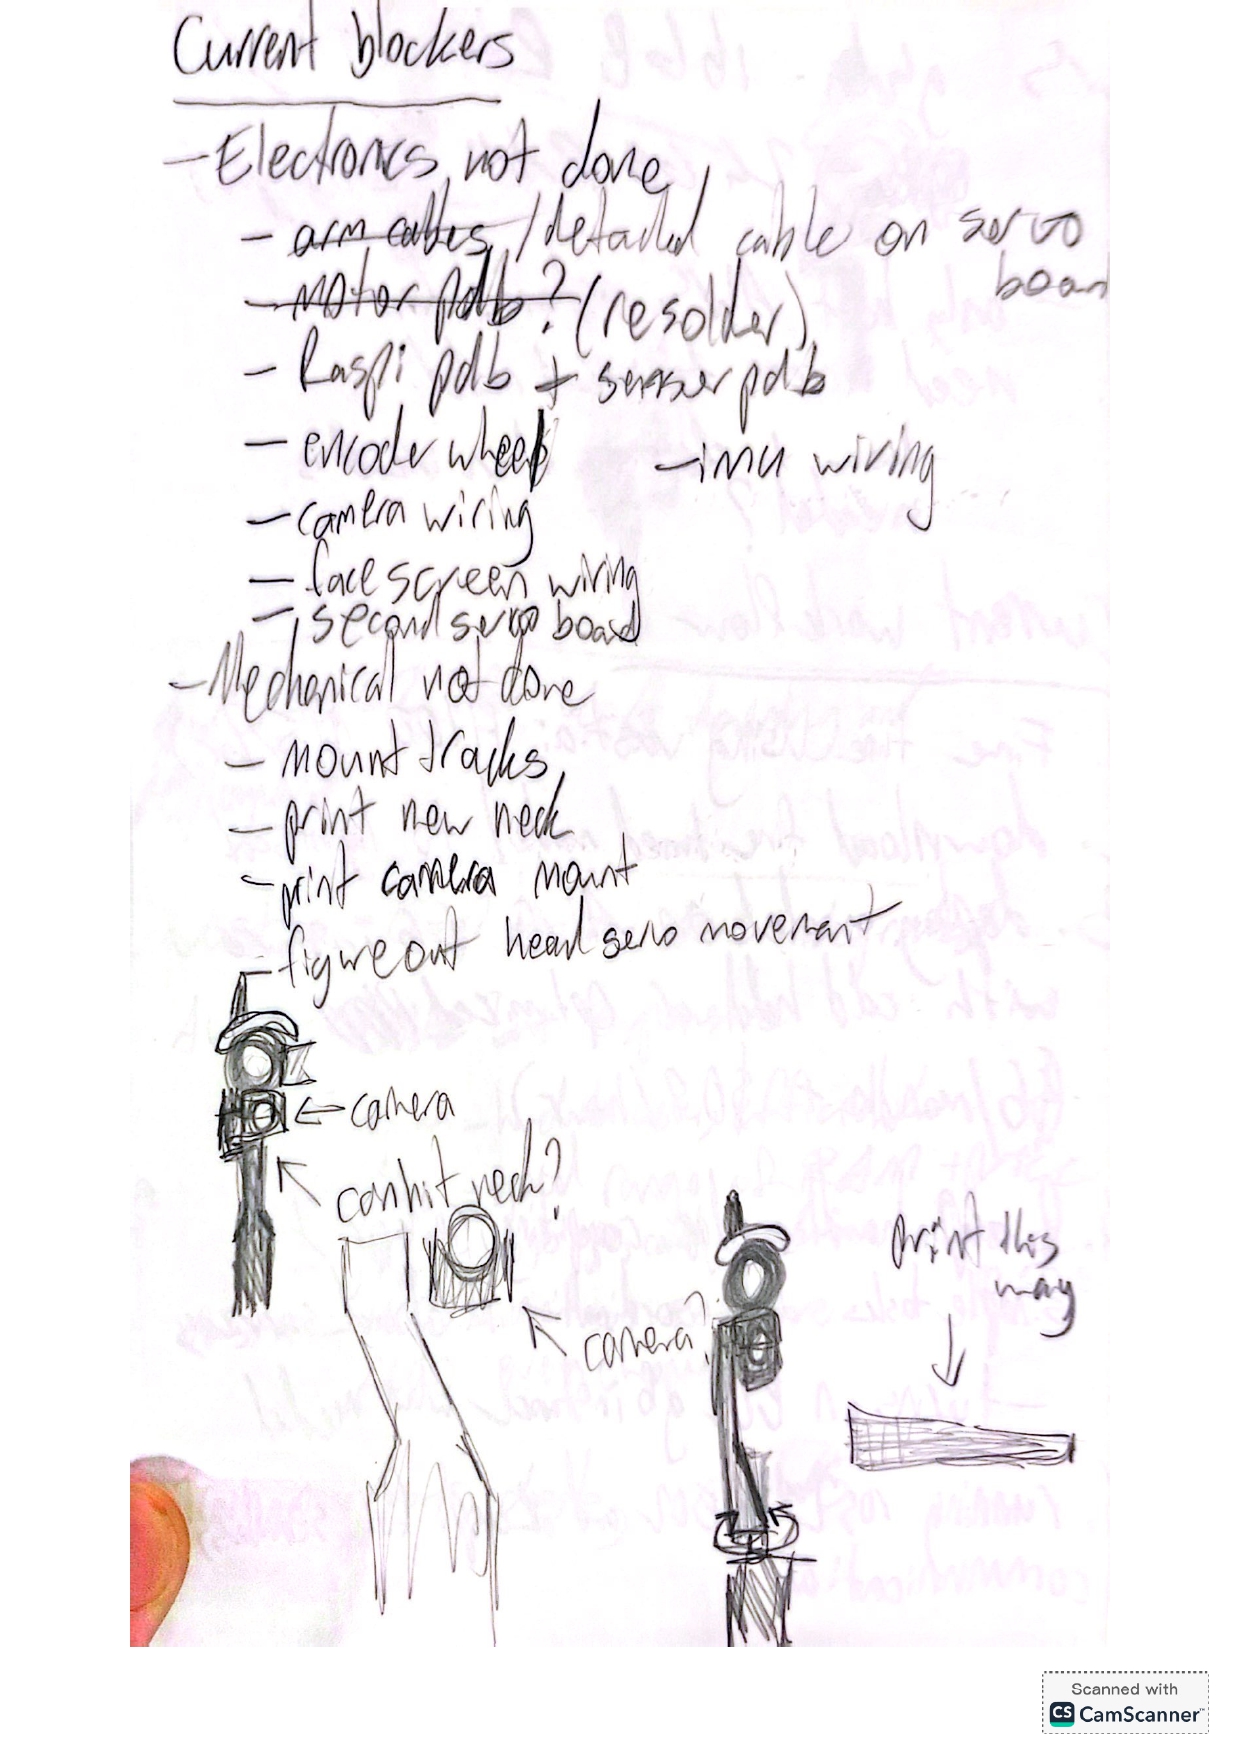 Current blockers
- Electronics not done
- arm cables / detailed cable on servo
board
- motor pdb? (resolder)
- Raspi pdb + sensor pdb
- encoder wheel
- imu wiring
- camera wiring
- face screen wiring
- second servo board
- Mechanical not done
- mount tracks
- print new neck
- print camera mount
- figure out head servo movement
← camera
can hit neck?
print this
way
camera?
Scanned with
CS CamScanner